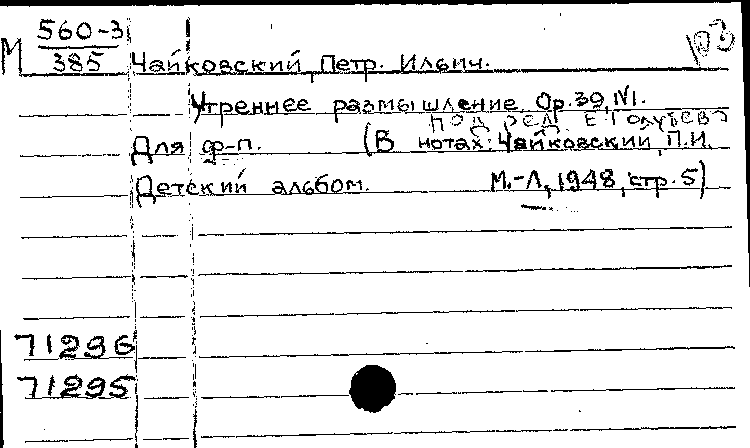 М 560-3
385 Чайковский, Петр. Ильич.
Утреннее размышление. Op.39, N1.
под ред. Е Голубева
Для ф-п. (В нотах: Чайковский, П.И.
Детский альбом. М.-Л, 1948, стр. 5)
71296
71295